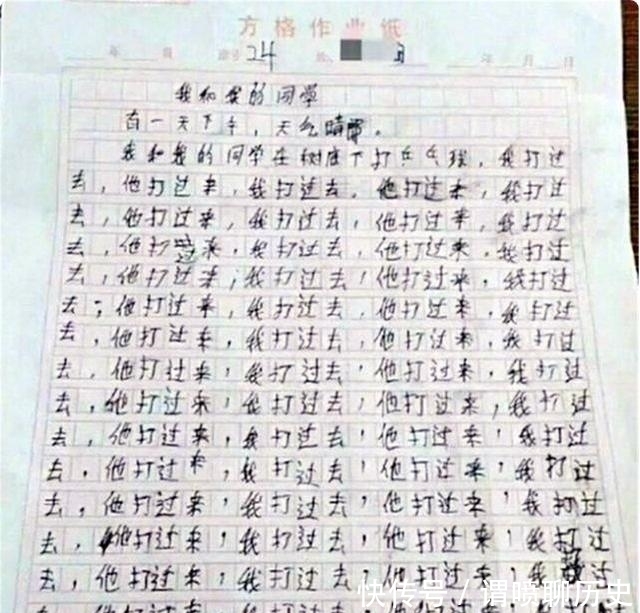 方格作业纸
年 月 24 年 月 日
我和我的同学
有一天下午，天气晴。
我和我的同学在树底下打乒乓球，我打过
去，他打过来，我打过去，他打过来，我打过
去，他打过来，我打过去，他打过来，我打过
去，他打过来，我打过去，他打过来，我打过
去，他打过来，我打过去，他打过来，我打过
去，他打过来，我打过去，他打过来，我打过
去，他打过来，我打过去，他打过来，我打过
去，他打过来，我打过去，他打过来，我打过
去，他打过来，我打过去，他打过来，我打过
去，他打过来，我打过去，他打过来，我打过
去，他打过来，我打过去，他打过来，我打过
去，他打过来，我打过去，他打过来，我打过
去，他打过来，我打过去，他打过来，我打过
去，他打过来，我打过去，他打过来，我打过
去，他打过来，我打过去，他打过来，我打过
快传号／谓嘚聊历史